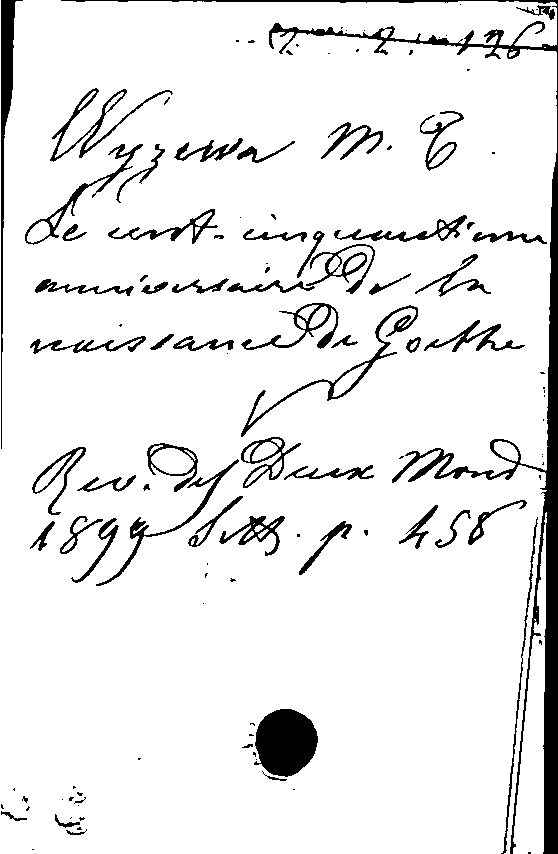 2. 2. 126
Wyzewa M. T.
Le cent-cinquantième
anniversaire de la
naissance de Goethe
Rev. des Deux Mond
1899 Sett. p. 458